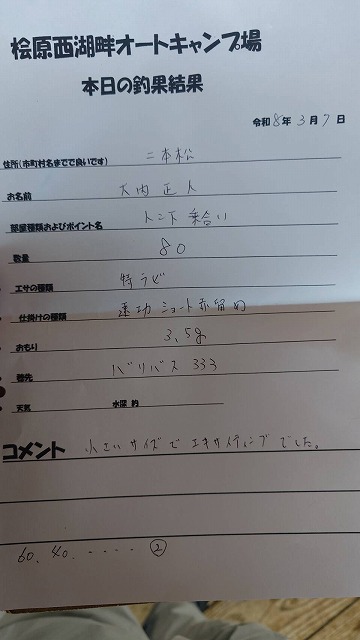 桧原西湖畔オートキャンプ場
本日の釣果結果
令和 8年 3月 7日
住所(市町村名までで良いです) 二本松
お名前 大内正人
部屋種類およびポイント名 トンド 乗合い
数量 80
エサの種類 特ラビ
仕掛けの種類 速功ショート赤留め
おもり 3.5g
穂先 バリバス 333
天気 水深 約
コメント 小さいサイズでエキサイティングでした。
60. 40. ・・・・・ ②